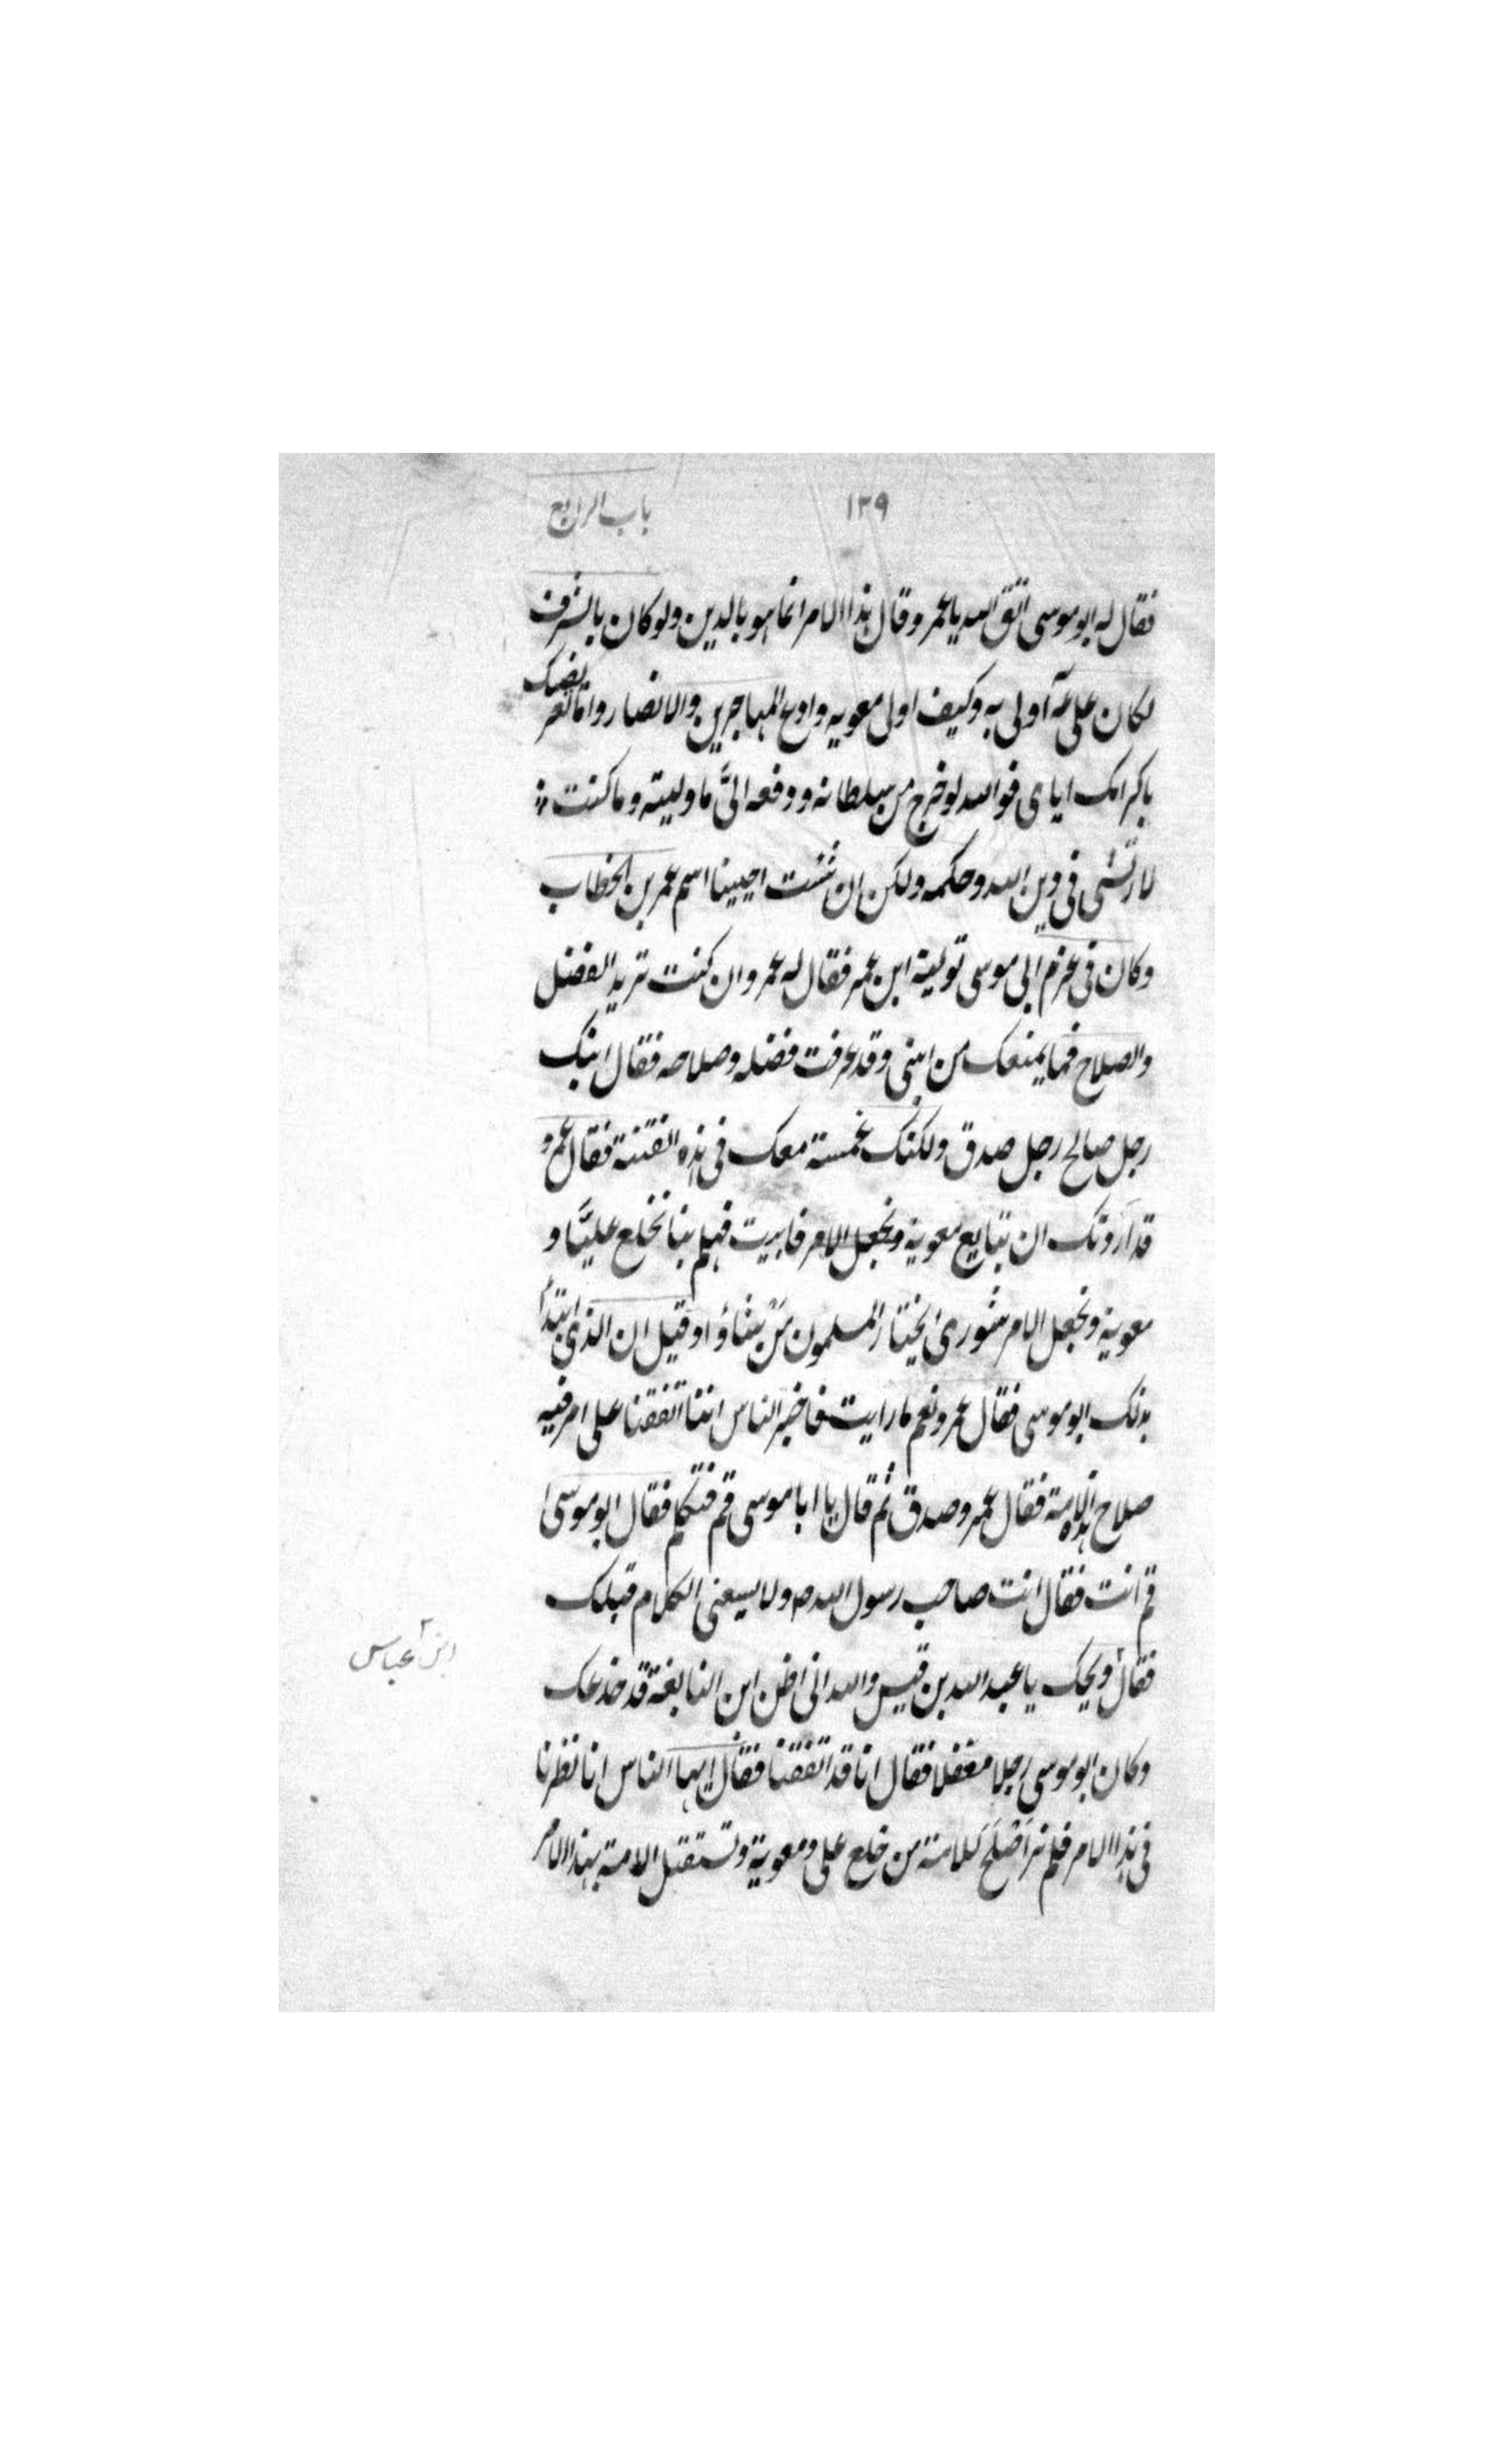 ١٣٩
باب الرابع
فقال له ابو موسى اتق الله يا عمرو قال هذا الامر انما هو بالدين ولو كان بالشرف
لكان على عم اولى به وكيف اولى معويه وادع المهاجرين والانصار واما تعريضك
باكرامك اياى فوالله لو خرج من سلطانه ودفعه الىّ ما وليته وما كنت
لارتشى فى دين الله وحكمه ولكن ان شئت احيينا اسم عمر بن الخطاب
وكان فى عزم ابى موسى تولية ابن عمر فقال له عمرو ان كنت تريد الفضل
والصلاح فما يمنعك من ابنى وقد عرفت فضله وصلاحه فقال ابنك
رجل صالح رجل صدق ولكنك غمسته معك فى هذه الفتنة فقال عمرو
قد اردتك ان تبايع معوية ونجعل الامر فابيت فهلم بنا نخلع عليّا و
معوية ونجعل الامر شورى يختار المسلمون مَنْ يشاؤا وقيل ان الذى ابتدأ
بذلك ابو موسى فقال عمرو نعم ما رايت فاخبر الناس اننا اتفقنا على امر فيه
صلاح هذه الامة فقال عمرو صدق ثم قال يا ابا موسى قم فتكلم فقال ابو موسى
قم انت فقال انت صاحب رسول الله ص ولا يسعنى الكلام قبلك
فقال ويحك يا عبد الله بن قيس والله انى اظن ابن النابغة قد خدعك
ابن عباس
وكان ابو موسى رجلا مغفلا فقال انا قد اتفقنا فقال ايها الناس انا نظرنا
فى هذا الامر فلم نر اصْلَحَ للامة من خلع على ومعوية وتستقبل الامة بهذا الامر